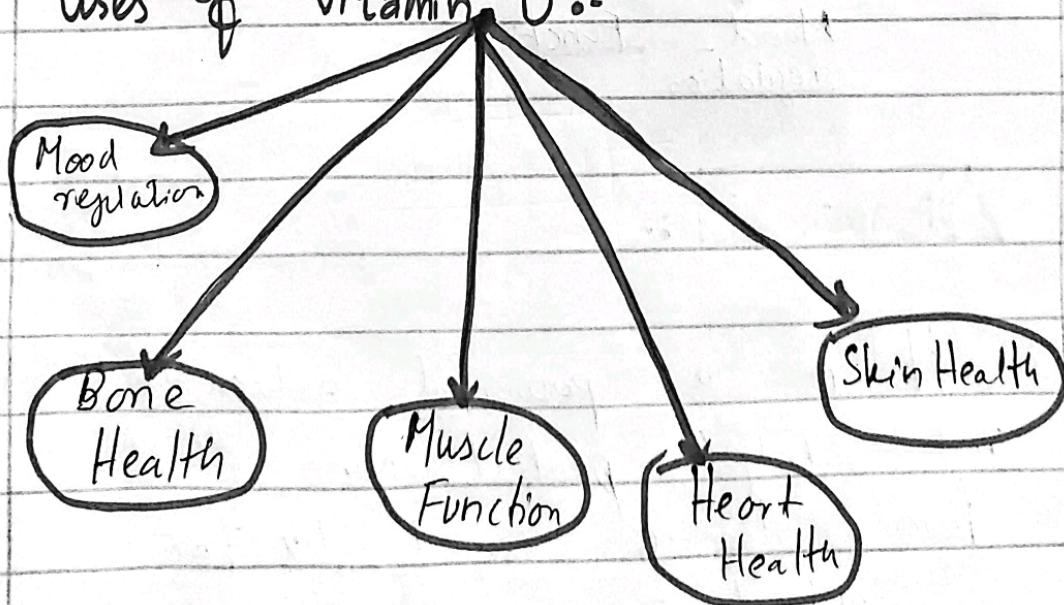 Uses of Vitamin D :-
Mood
regulation
Bone
Health
Muscle
Function
Heart
Health
Skin Health